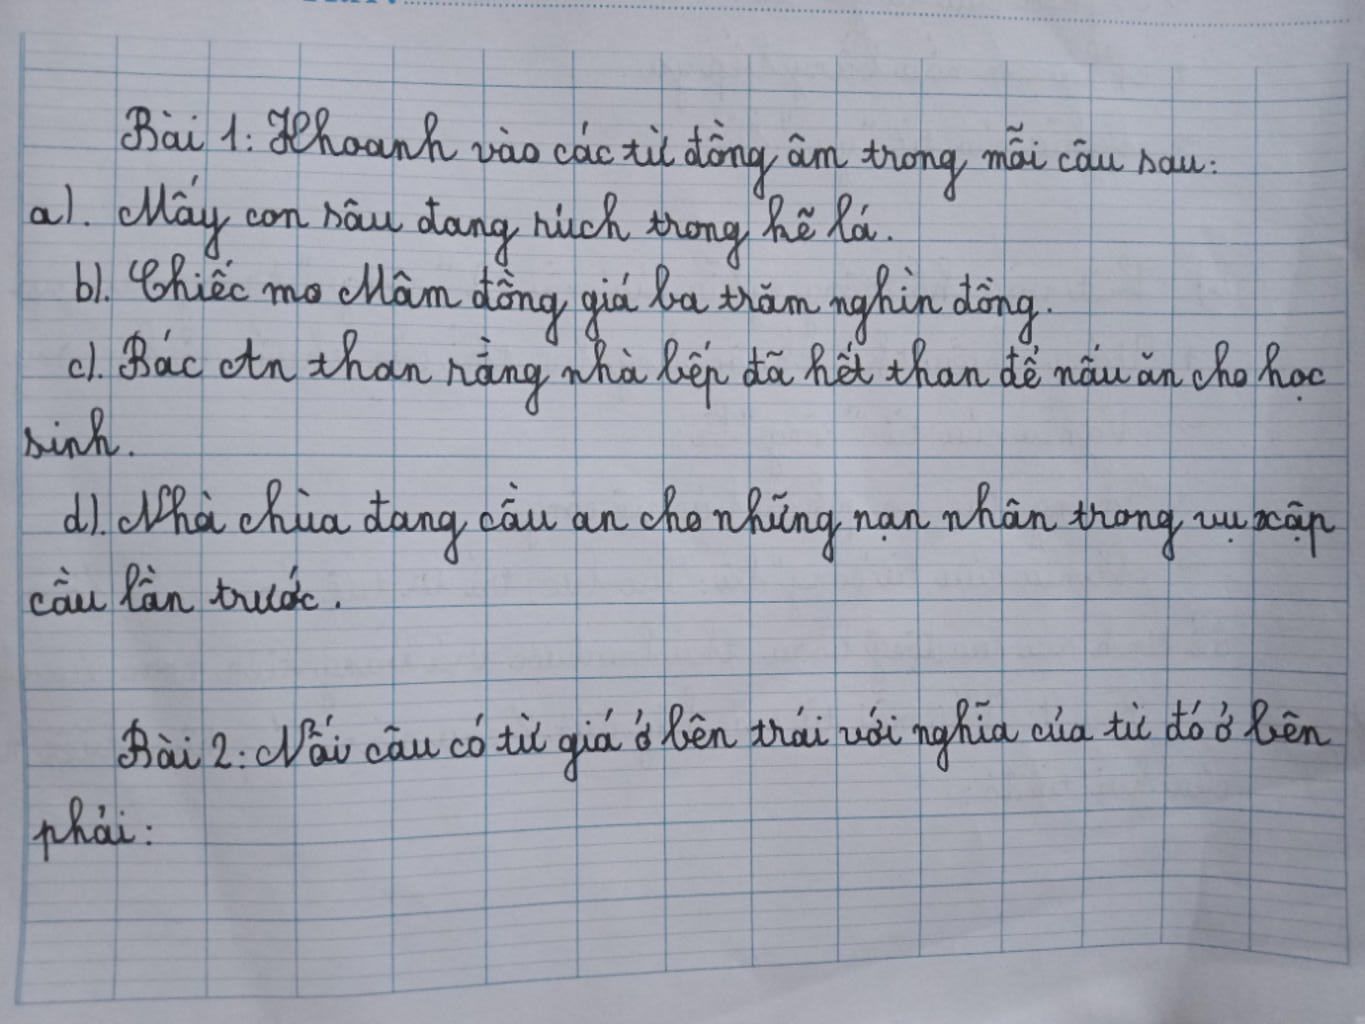 Bài 1: Khoanh vào các từ đồng âm trong mỗi câu sau:
a). Mấy con sâu đang rúch trong kẽ lá.
b). Chiếc mo Mâm đồng giá ba trăm nghìn đồng.
c). Bác An than rằng nhà bếp đã hết than để nấu ăn cho học
sinh.
d). Nhà chùa đang cầu an cho những nạn nhân trong vụ xập
cầu lần trước.
Bài 2: Nối câu có từ giá ở bên trái với nghĩa của từ đó ở bên
phải: